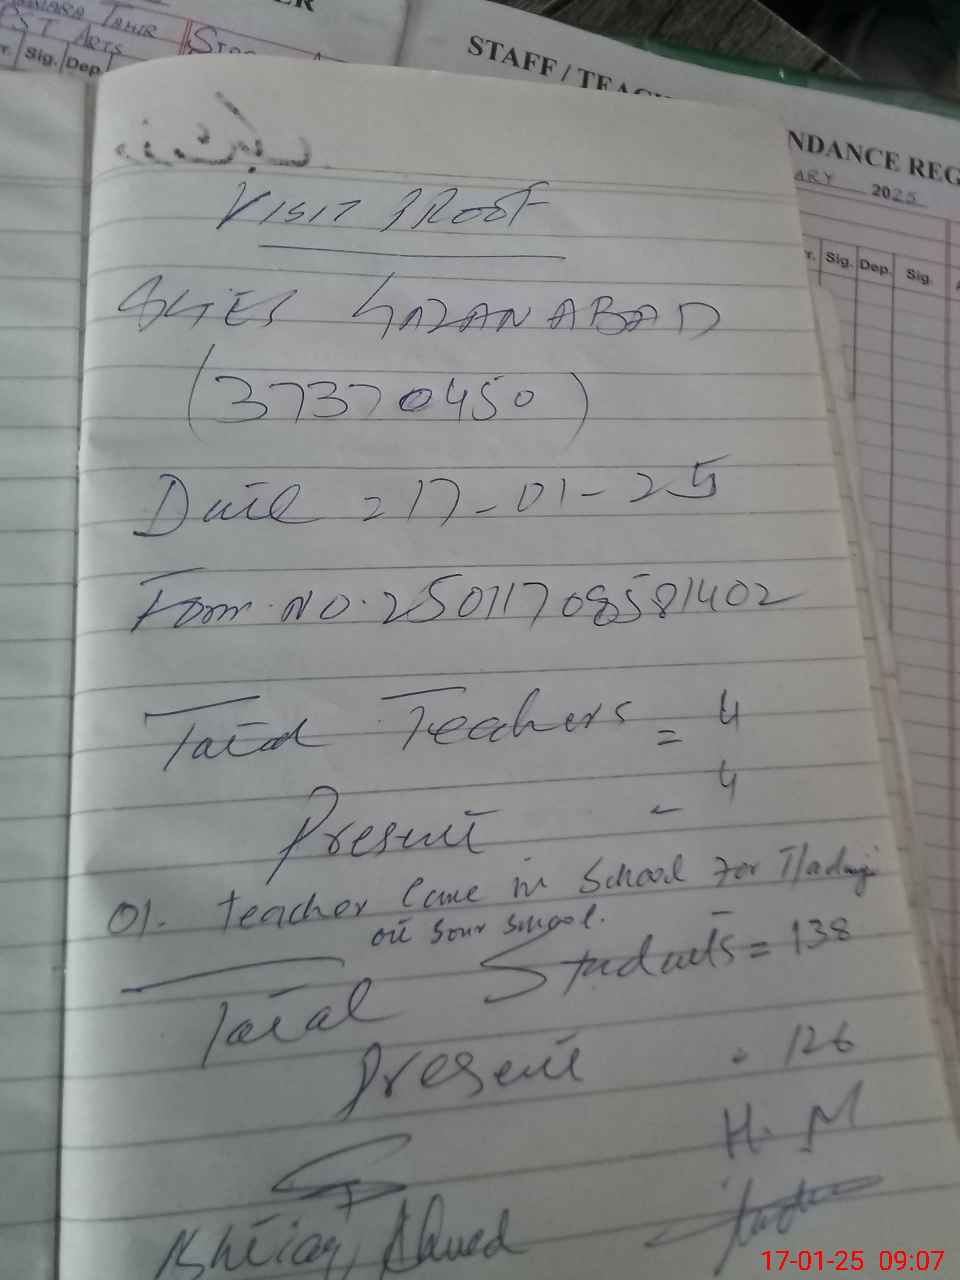 TAHIR
ARTS
Sig. Dep.
STAFF / TEAC
NDANCE REG
ARY 2025
Sig. Dep. Sig.
VISIT PROOF
GGES GAZANABAD
(37370450)
Date = 17-01-25
Form NO. 25011708581402
Total Teachers = 4
Present - 4
01. teacher came in School for
School.
Total Students = 138
Present = 126
H. M
Ahmed
17-01-25 09:07